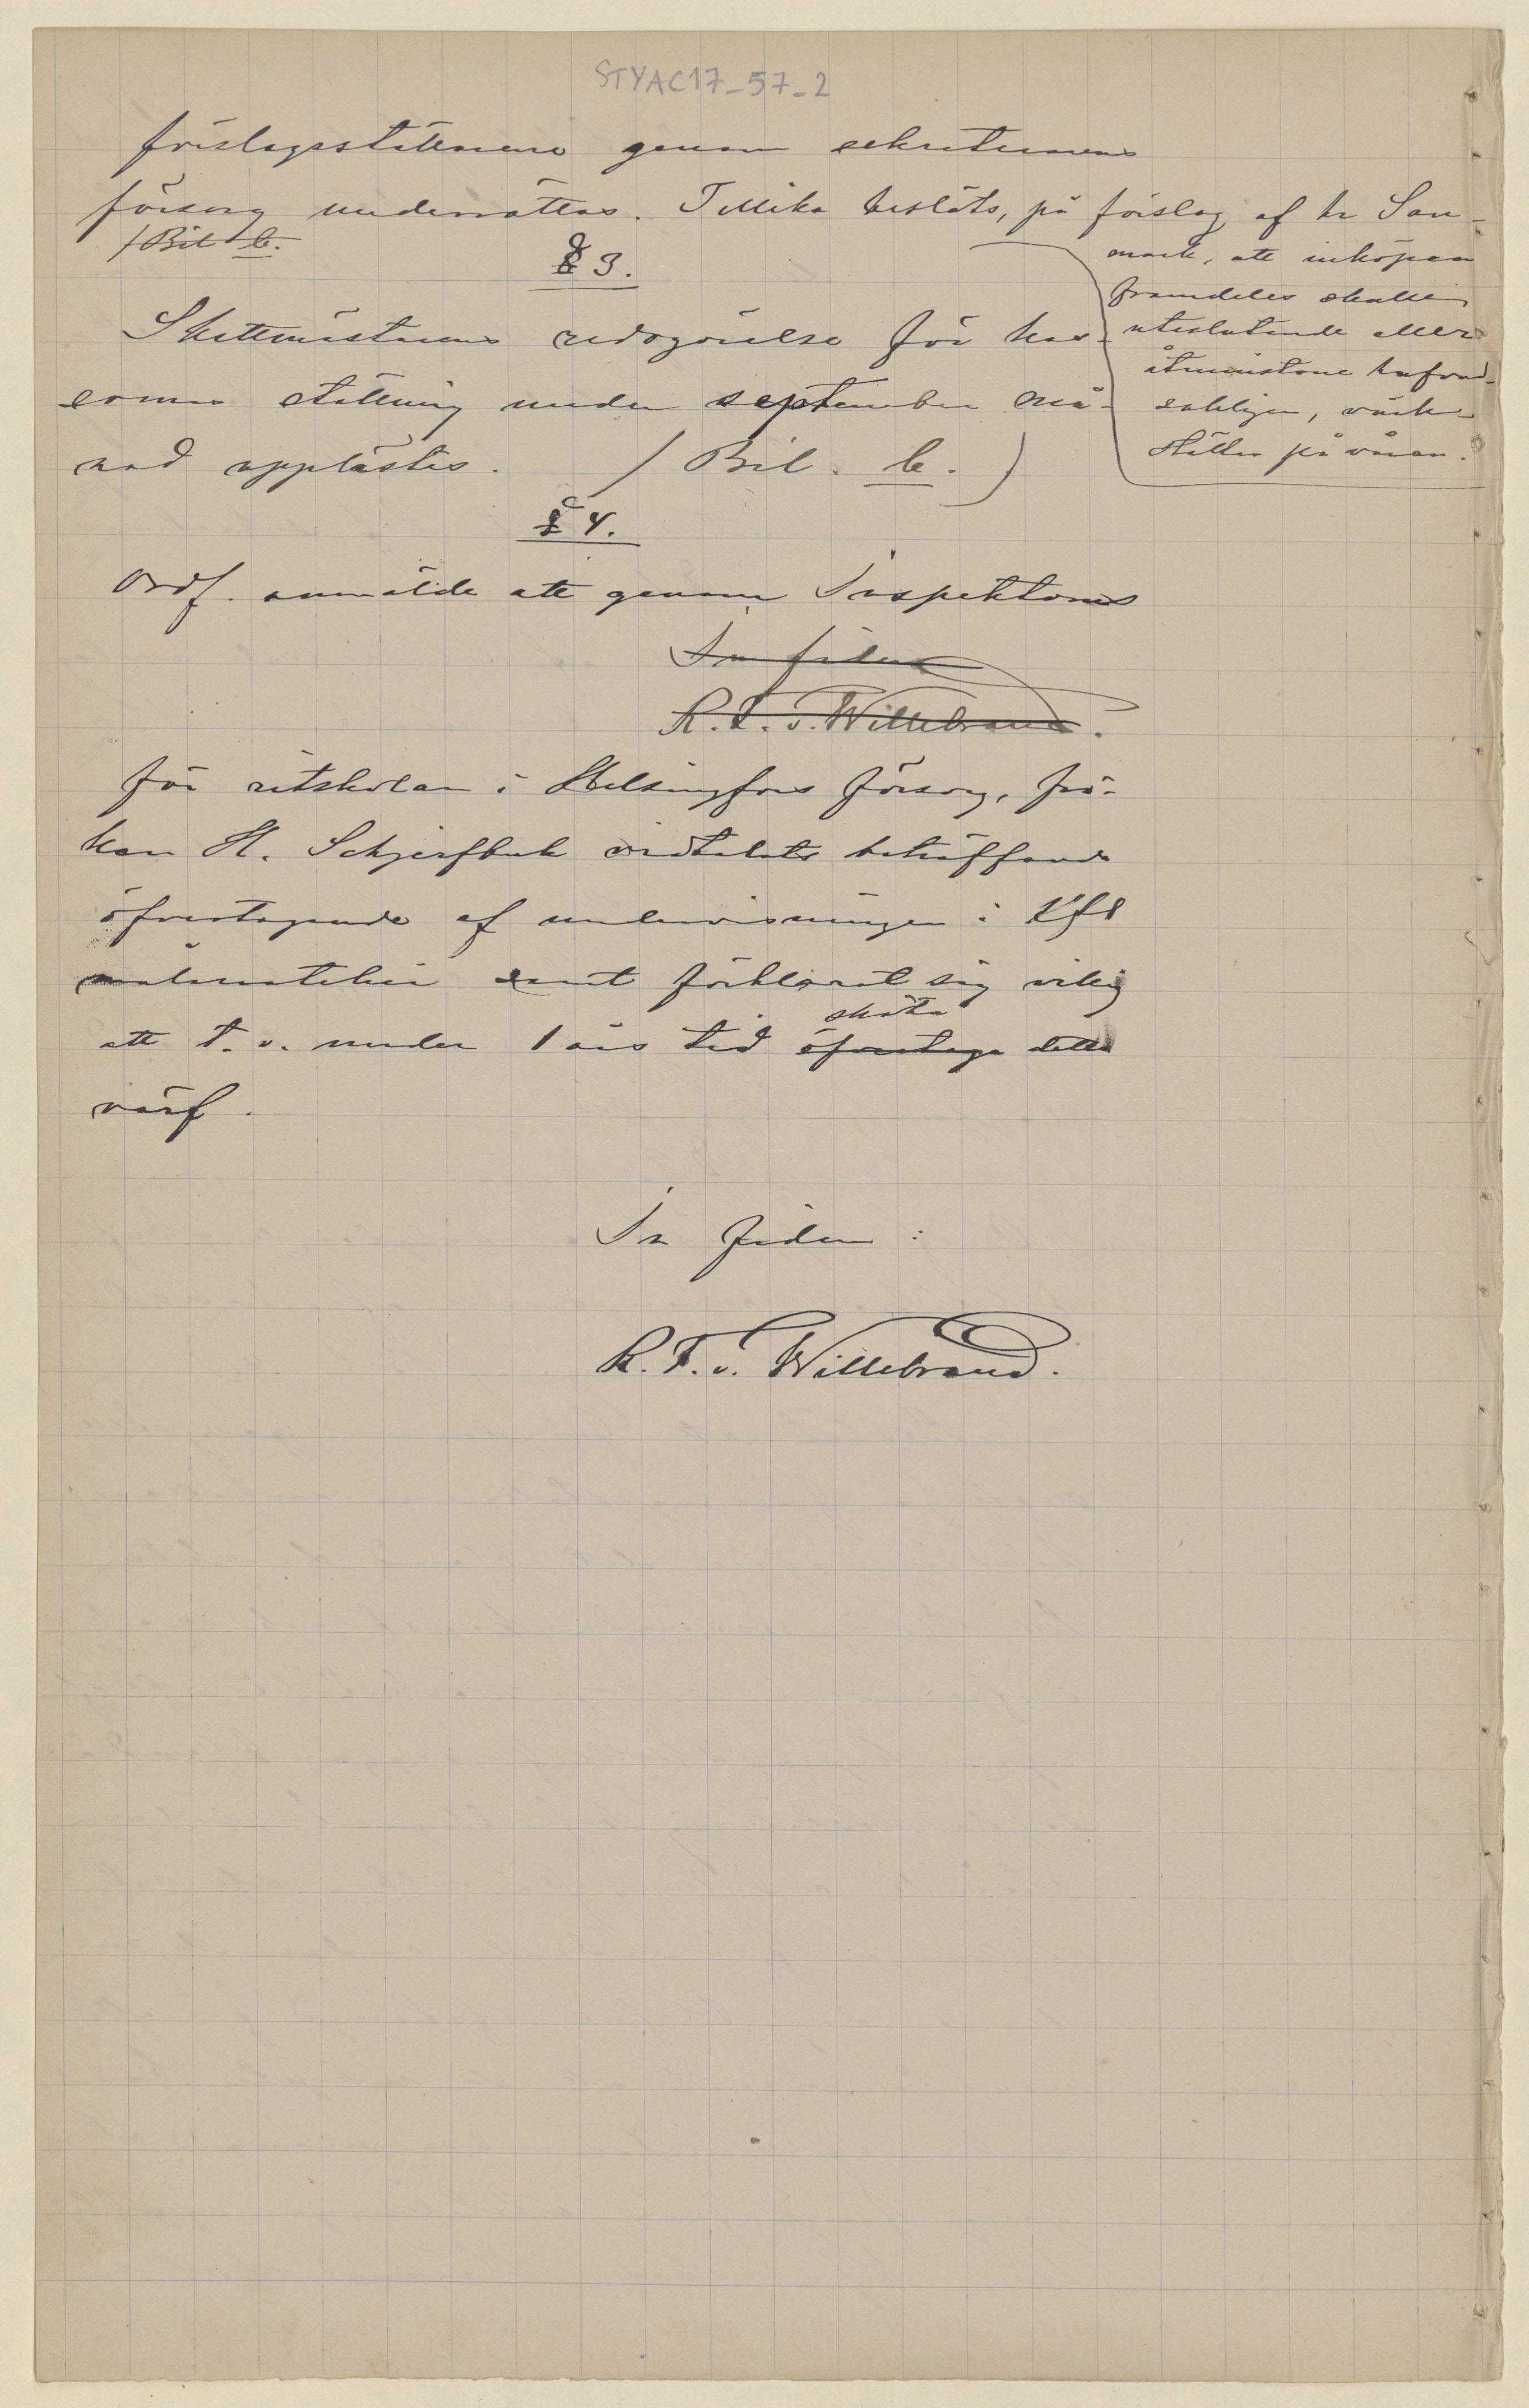 STYAC17_57_2
förslagsställarene genom sekreterarens
försorg underrättas. Tillika beslöts, på förslag af hr San-
mark, att inköpen
framdeles skulle
uteslutande eller
åtminstone hufvud-
sakligen, värk-
ställas på våren.
/ Bil. b.
§ 3.
Skattmästarens redogörelse för kas-
sornas ställning under september må-
nad upplästes. / Bil. b. )
§ 4.
Ordf. anmälde att genom Inspektorns
In fidem
R. F. v. Willebrand.
för ritskolan i Helsingfors försorg, frö-
ken H. Schjerfbeck vidtalats beträffande
öfvertagande af undervisningen i Kfl
målareateliér samt förklarat sig villig
att t. v. under 1 års tid öfvertaga detta
sköta
värf.
In fidem :
R. F. v. Willebrand.